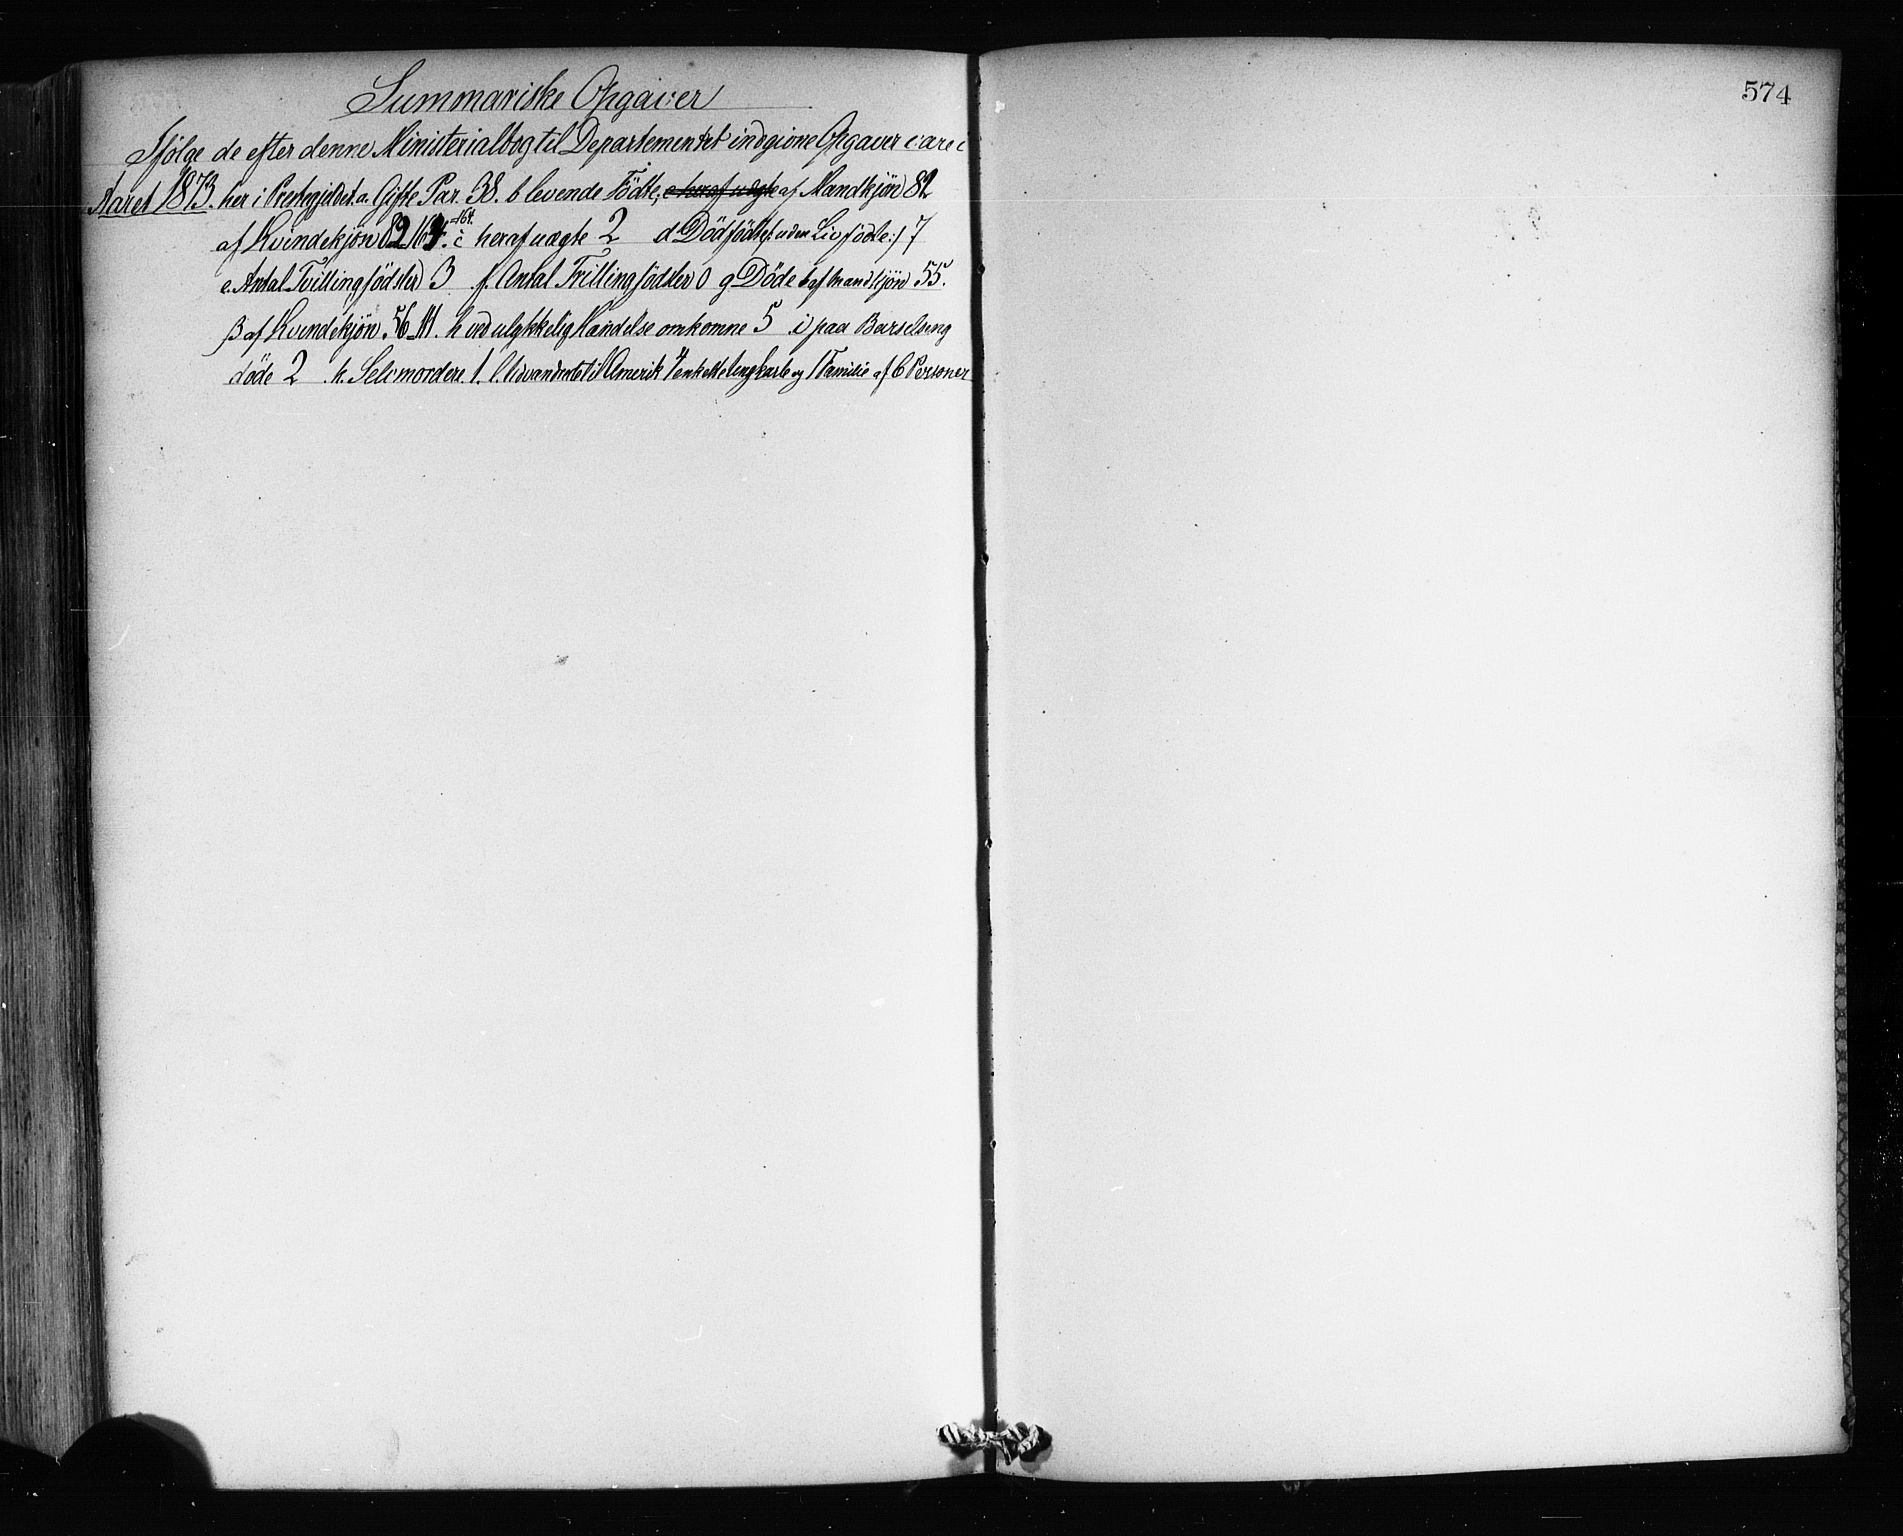 Summariske Opgaver
Ifølge de efter denne Ministerialbog til Departementet indgivne Opgaver vare i
Aaret 1873. her i Prestegjeldet a. Gifte Par. 38. b levende Födte, c heraf uægte af Mandkjøn 82
af Kvindekjön 82 164. =164. c heraf uægte 2 d Dödfödte (: uden Liv födte :) 7
e. Antal Tvillingfödsler 3 f. Antal Trillingfödsler 0 g Döde af Mandkjön 55.
β af Kvindekjön. 56_111. h ved ulykkelig Handelse omkomne 5 i paa Barselseng
döde 2 k. Selvmordere. 1. l. Udvandrede til Amerik 4 enkelte Ungkarle og 1 Familie af 6 Personer
574